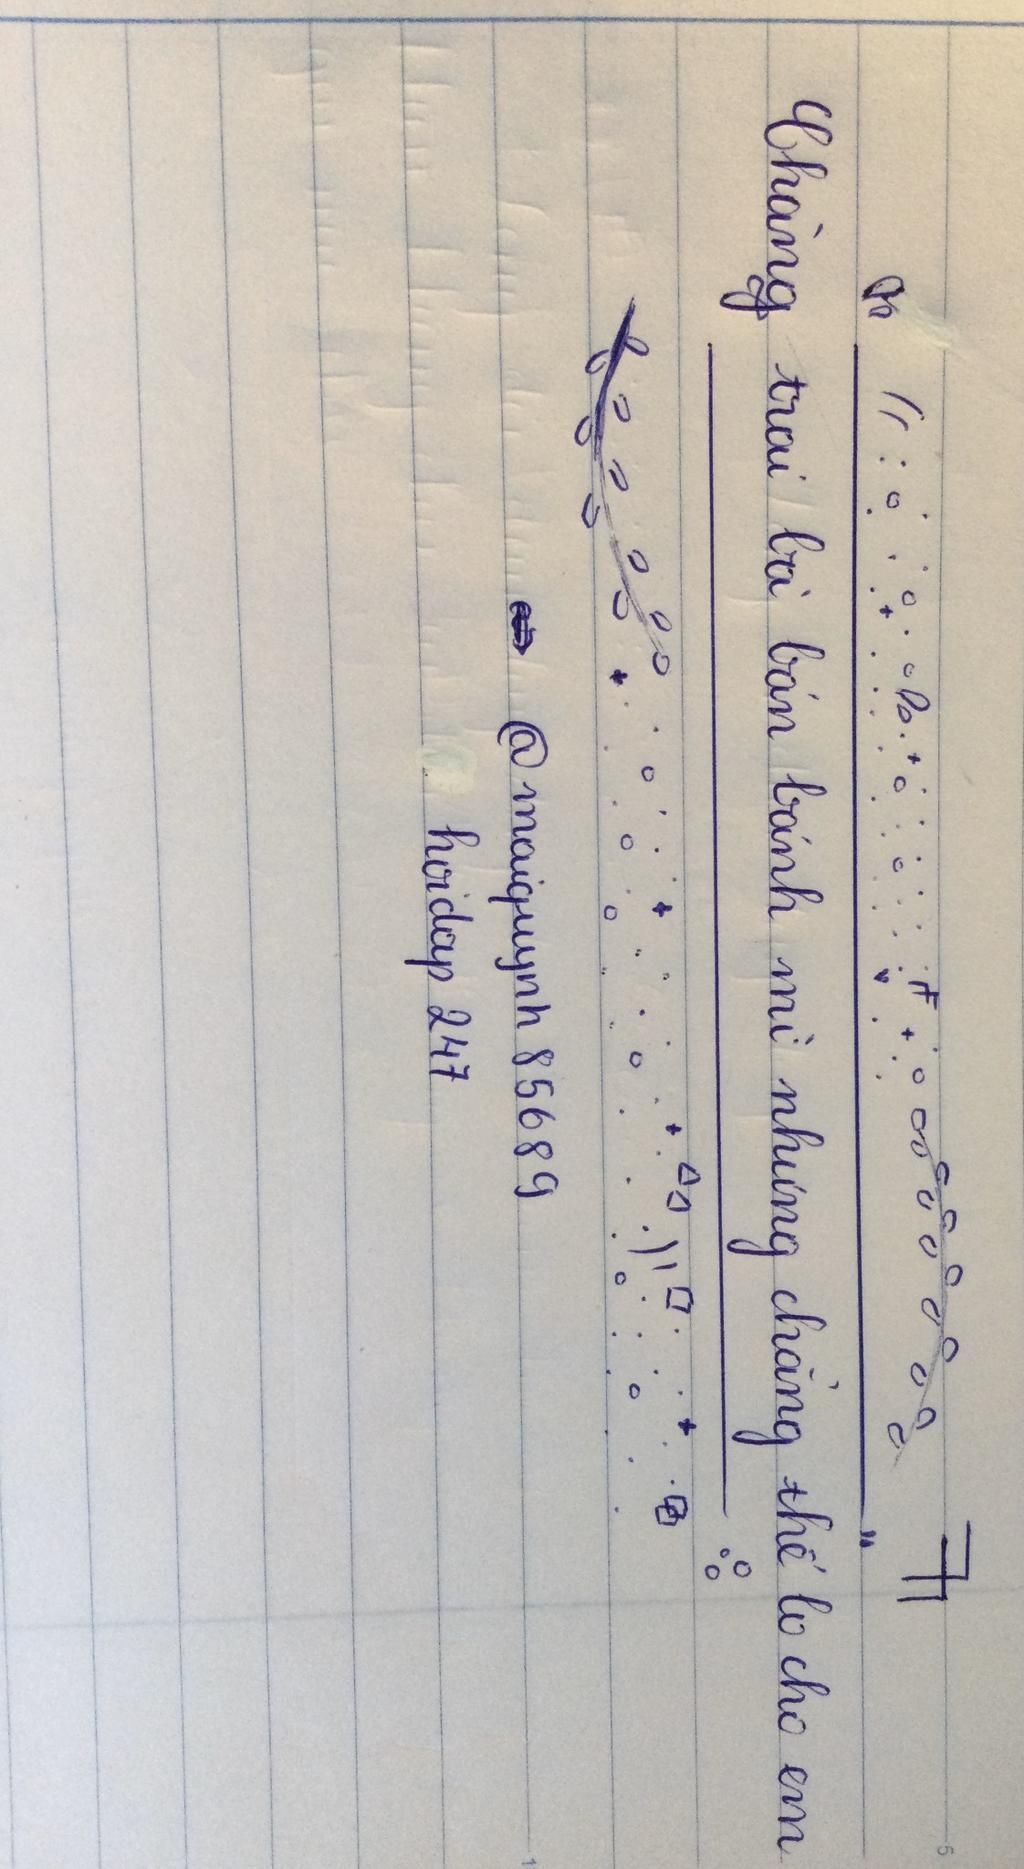 Chàng trai bà bán bánh mì nhưng chẳng thể lo cho em
@maiquynh85689
hoidap 247